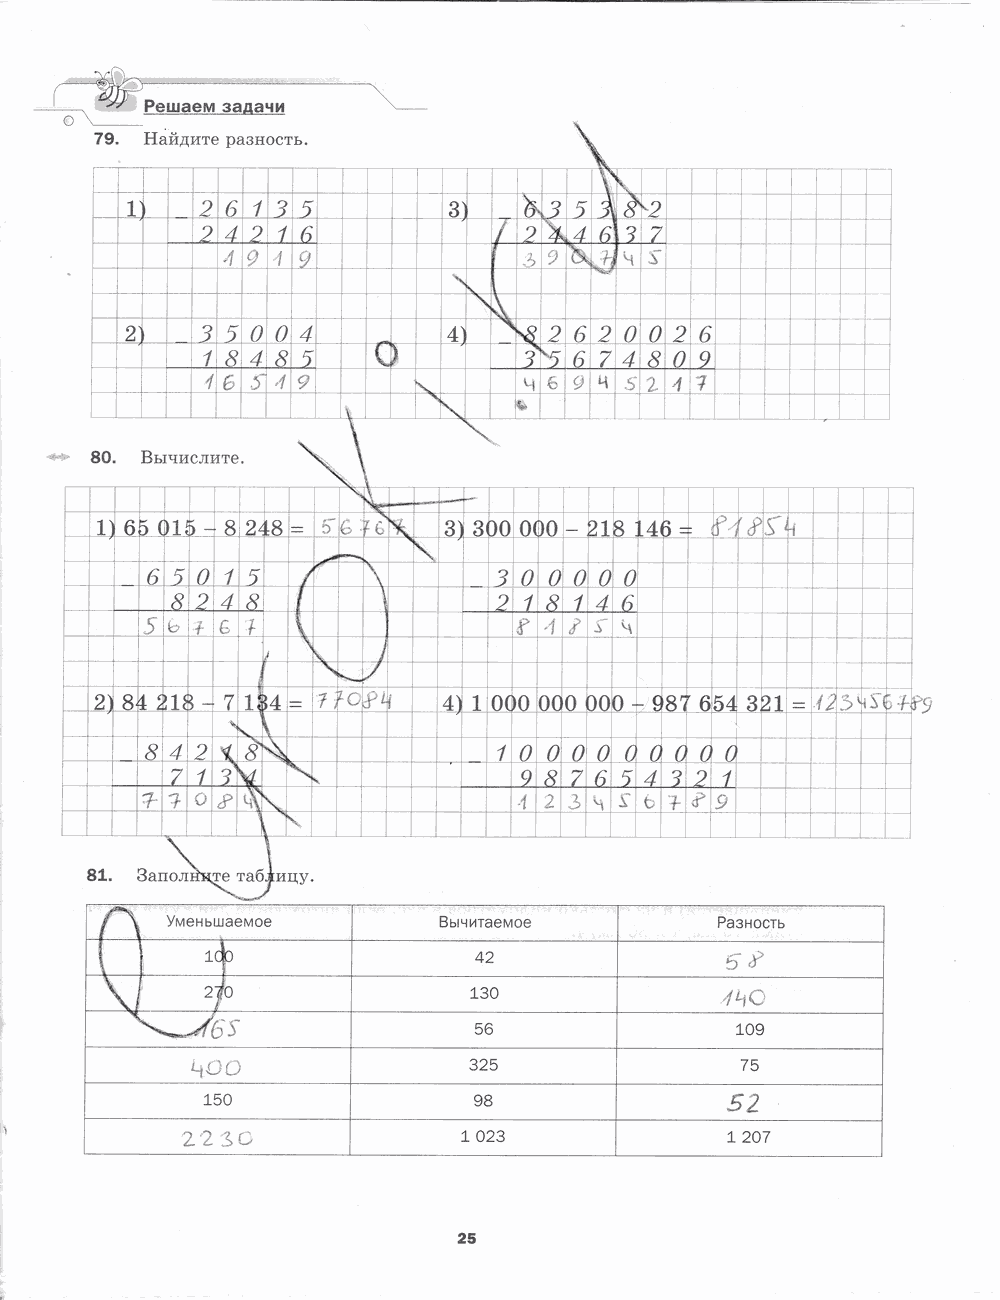 Решаем задачи
79. Найдите разность.
1) − 2 6 1 3 5
2 4 2 1 6
1 9 1 9
3) − 6 3 5 3 8 2
2 4 4 6 3 7
3 9 0 7 4 5
2) − 3 5 0 0 4
1 8 4 8 5
1 6 5 1 9
4) − 8 2 6 2 0 0 2 6
3 5 6 7 4 8 0 9
4 6 9 4 5 2 1 7
80. Вычислите.
1) 65 015 − 8 248 = 56767
− 6 5 0 1 5
8 2 4 8
5 6 7 6 7
3) 300 000 − 218 146 = 81854
− 3 0 0 0 0 0
2 1 8 1 4 6
8 1 8 5 4
2) 84 218 − 7 134 = 77084
− 8 4 2 1 8
7 1 3 4
7 7 0 8 4
4) 1 000 000 000 − 987 654 321 = 123456789
− 1 0 0 0 0 0 0 0 0 0
9 8 7 6 5 4 3 2 1
1 2 3 4 5 6 7 8 9
81. Заполните таблицу.
Уменьшаемое Вычитаемое Разность
100 42 58
270 130 140
165 56 109
400 325 75
150 98 52
2230 1 023 1 207
25